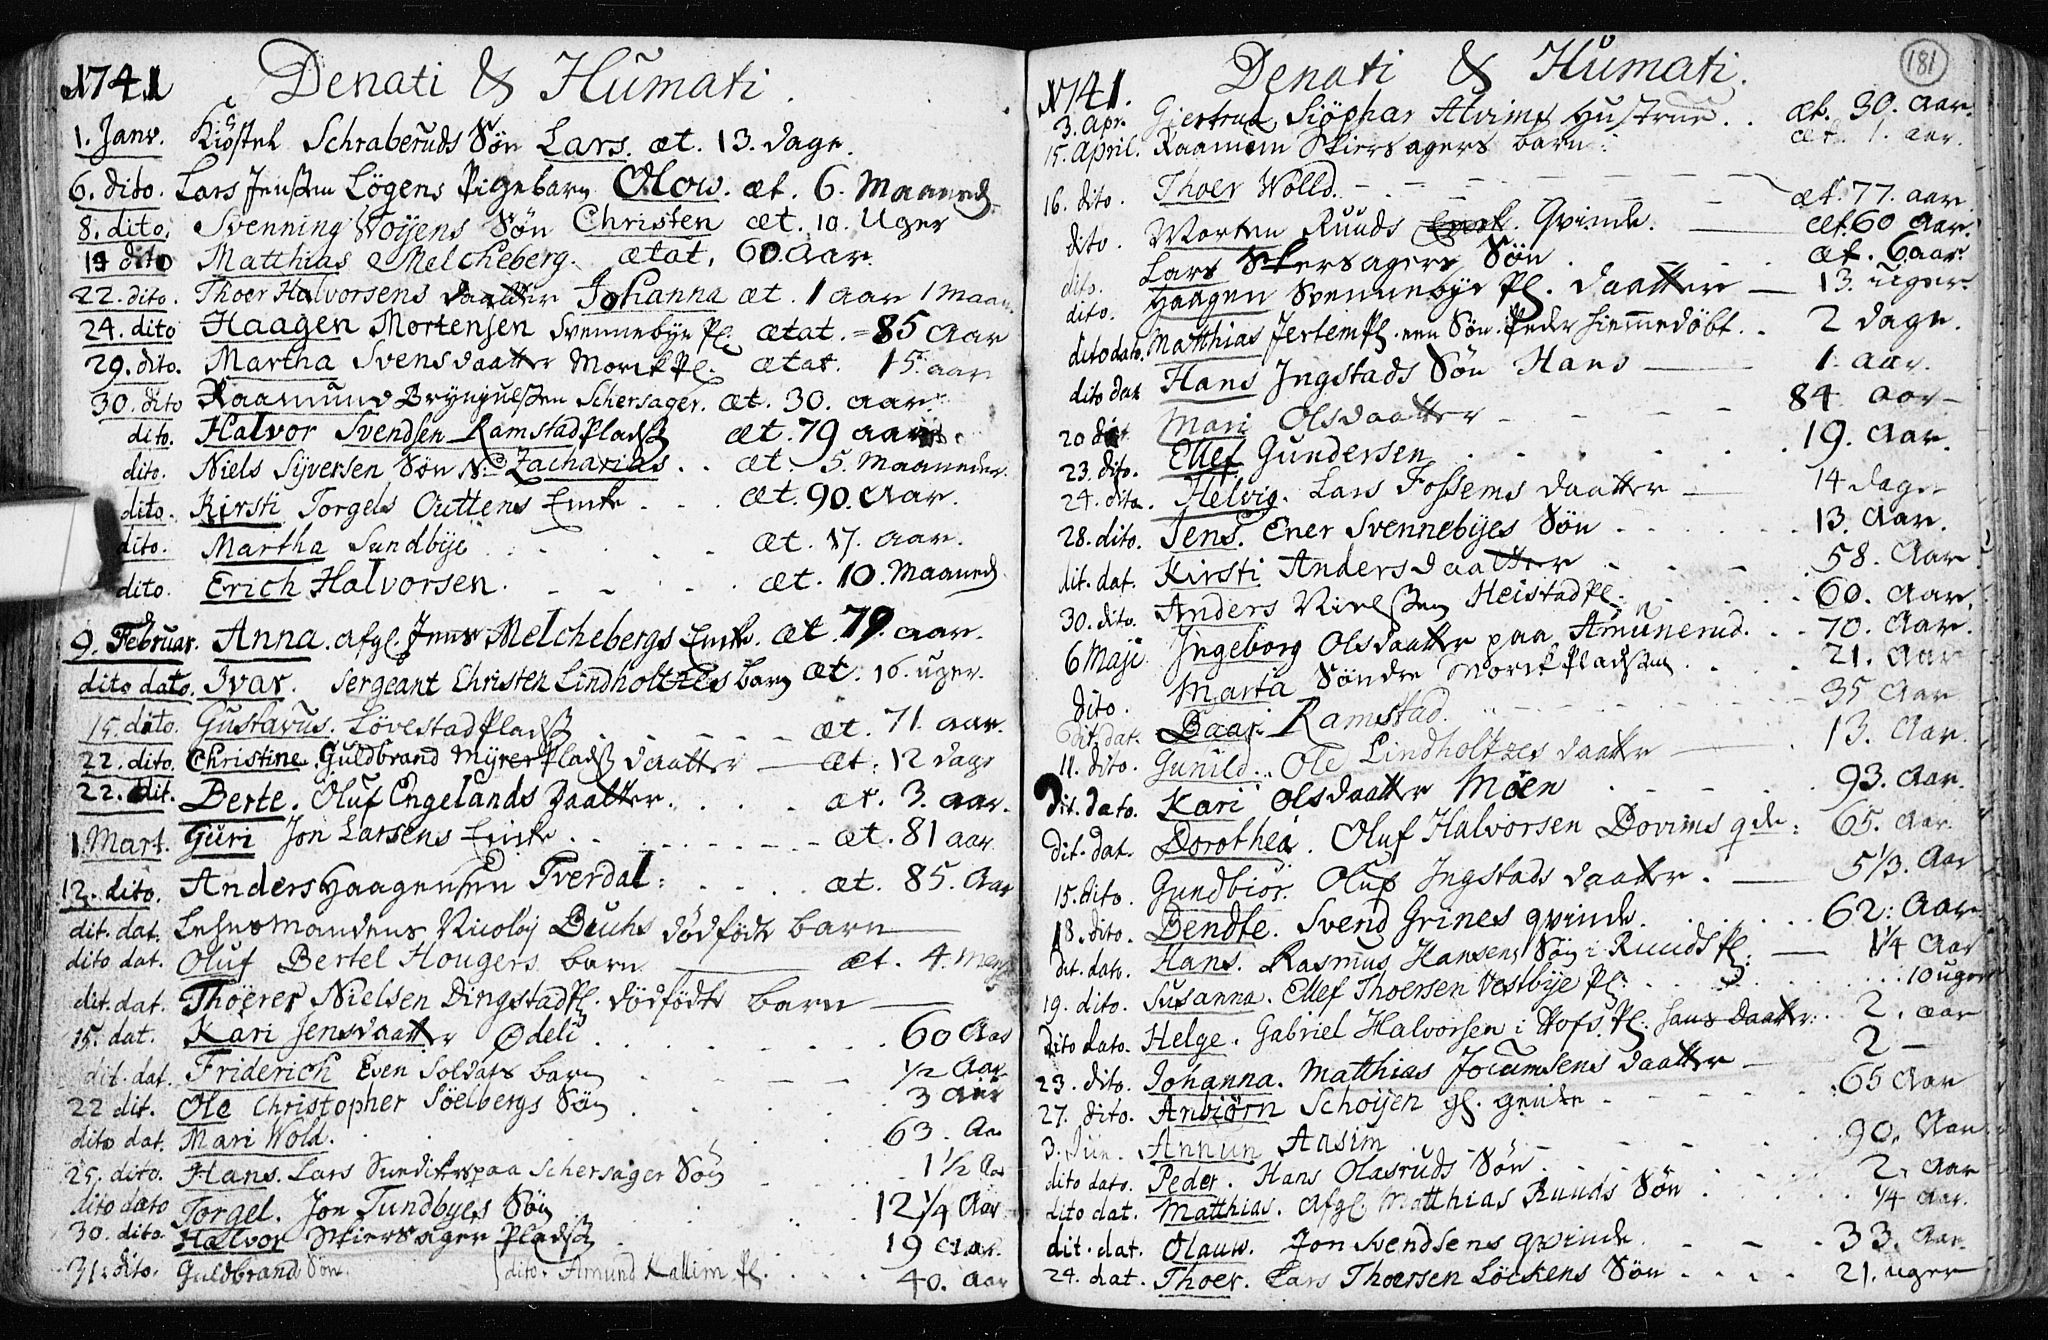 1741 Denati & Humati.
1. Janv. Kiöstel Schraberuds Sön Lars. æt. 13. dage.
6. dito. Lars Jenssen Lögens Pigebarn Olow. æt. 6. Maaned
8. dito. Svenning Woyens Sön Christen æt. 10. Uger
19 dito Matthias Melcheberg. ætat. 60 Aar.
22. dito. Thoer Halvorsens daatter Johanna æt. 1 aar 1 Maan
24. dito Haagen Mortensen Svennebye Pl. ætat. = 85 Aar
29. dito. Martha Svensdaatter Morck Pl. ætat. 15. aar
30. dito Raamund Brynjulssen Schersager. æt. 30. aar.
dito. Halvor Svendsen Ramstad Pladss æt. 79 aar
dito. Niels Syversen Sön N: Zacharias . . æt. 5. Maaneder.
dito. Kirsti Torgels Outtens Encke . . . æt. 90. Aar.
dito. Martha Sundbye . . . . æt. 17. aar.
dito. Erich Halvorsen. . . . . æt. 10. Maaned
9. Februar. Anna. afgl. Jens Melchebergs Encke. æt. 79. aar.
dito dato. Ivar. Sergeant Christen Lindholtzes barn æt. 16. uger.
15. dito. Gustavus. Lövestad Pladss . . . . æt. 71. aar.
22. dito. Christine. Guldbrand Myrer Pladss daatter — æt. 12 dage
22. dit. Berte. Oluf Engelands Daatter. . . . . æt. 3. aar.
1. Mart. Guri Jon Larsens Encke . . . . . . æt. 81 aar
12. dito. Anders Haagensen Tverdal: . . . . æt. 85. Aar
dit. dat. Lehnsmandens Nicolay Buchs dödfödte barn —
dito dat. Oluf Bertel Hougers barn — æt. 4.
dit. dat. Thoerer Nielsen Dingstad Pl. dödfödte barn —
15. dat. Kari Jensdaatter Ödeli . . . . . . 60 Aar
dit. dat. Friderich Even Soldats barn . . . . 1/2 Aar
22 dit. Ole Christopher Söelbergs Sön . . . . 3 Aar
dito dat. Mari Wold. . . . . . 63. Aa
25. dito. Hans. Lars paa Schersager Sön . . . 1 1/2 Aar
dito dato Torgel. Jon Tundbyes Sön . . . . 12 1/4 Aar
30. dito. Halvor Skiersager Pladss . . . . 19 Aar.
31. dito. Guldbrand Sön. dito. Amund Kallim Pl. . . . . 40. Aar
181
1741. Denati & Humati.
3. Apr. Giertrud Siöphar Alvims Hustrue . . æt. 30. Aar.
15. April. Raamun Skiersagers barn: æt. 1. aar.
16. dito. Thoer Wolld. - - - - - æt. 77. aar
dito. Morten Ruuds Qvinde. — æt. 60 Aar.
dito. Lars Skersagers Sön . . . æt. 6 aar.
dito. Haagen Svennebye Pl. daatter — 13. uger.
dito dato. Matthias Jertem Pl. een Sön. Peder hiemmedöbt. . 2 dage.
dito dat Hans Ingstads Sön Hans — 1. aar.
20 dit. Mari Olsdaatter - - - - 84 Aar-
23. dito. Ellef Gundersen . . . . . 19. Aar.
24. dito. Helvig. Lars Fossems daatter — 14 dage
28. dito. Jens. Ener Svennebyes Sön . . . . . 13. Aar.
dit. dat. Kirsti Andersdaatter . . . . 58. Aar
30. dito. Anders Nielssen Heistad Pl. . . . . 60. Aar.
6 Maji Ingeborg Olsdaatter paa Amunerud. . . 70. Aar.
dito. Marta Söndre Morck Pladssen . . . 21. Aar
dit. dat. Baar. Ramstad. . . . . . 35 Aar
11. dito. Gunild. . Ole Lindholtzes daatter — 13. Aar.
dit. dato. Kari Olsdaatter Möen . . . . . 93. Aar.
dit. dat. Dorothea. Oluf Halvorsen Dovims qde: 65. Aar.
15. dito. Gundbiör. Oluf Ingstads daatter. — 5 1/3. Aar
18. dito. Bendte. Svend Grines qvinde. . . . . 62: Aar
dit. dato. Hans. Rasmus Hansens Sön i Ruuds Pl. — 1 1/4 Aar
19. dito. Susanna. Ellef Thoersen Vestbye Pl. . . . . 10 uger
dito dato. Helge. Gabriel Halvorsen i Hofs Pl. hans daatter: . 2. aar
23. dito. Johanna. Matthias Jocumsens daatter — 2 —
27. dito. Anbiörn Schoyen gl. - - - - 65 Aar
3. Jun. Annun Aasim . . . . . 90. Aar
dito dato. Peder. Hans Olasruds Sön . . . . 2. Aar
dito dat. Matthias. Afgl. Matthias Ruuds Sön . . . . 1/4 Aar.
dit. dat. Olauw. Jon Svendsens qvinde. - - - 33. Aar.
24. dat. Thoer. Lars Thoersen Löckens Sön . . . . 21. uger